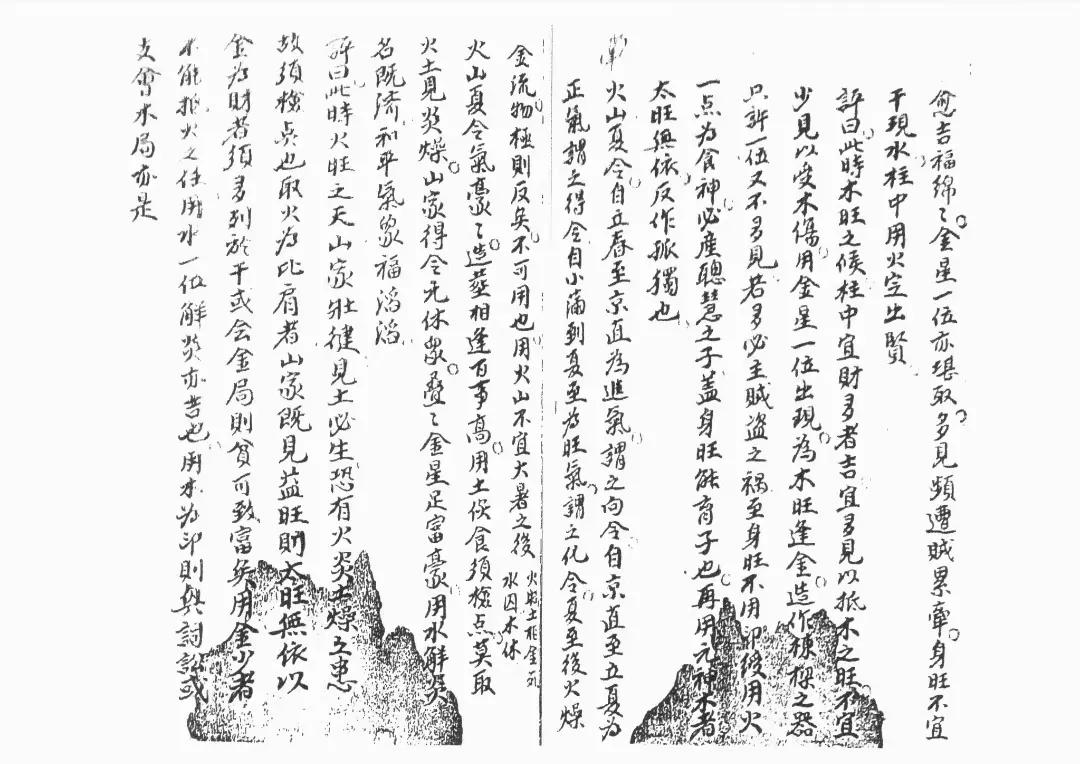 愈吉福綿々金星一位亦堪取多見頻遭賊累牽身旺不宜
干現水柱中用火定出賢
評曰此時木旺之候柱中宜財多者吉宜多見以抵木之旺不宜
少見以受木傷用金星一位出現為木旺逢金造作棟樑之器
只許一位又不多見若多必主賊盗之禍至身旺不用印綬用火
一点為食神必産聰慧之子蓋身旺能育子也再用元神木者
太旺無依反作孤獨也
火山夏令自立春至京直為進氣謂之向令自京直至立夏為
正氣謂之得令自小滿到夏至為旺氣謂之化令夏至後火燥
金流物極則反矣不可用也用火山不宜大暑之後
火山夏令氣豪々造塟相逢百事高用土伙食須檢点莫取
火土見炎燥山家得令元休衆叠々金星足富豪用水解炎
名既済和平氣象福滔滔
評曰此時火旺之天山家壯徤見土必生恐有火炎土燥之患
故須檢点也取火為比肩者山家既見益旺則太旺無依以
金為財者須多列於干或会金局則貧可致富矣用金少者
不能抵火之任用水一位解炎亦吉也用木為印則與討訟或
支會木局亦是